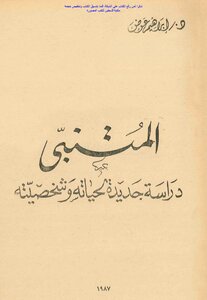 د. إبراهيم عوض
المتنبي
دراسة جديدة لحياته وشخصيته
١٩٨٧